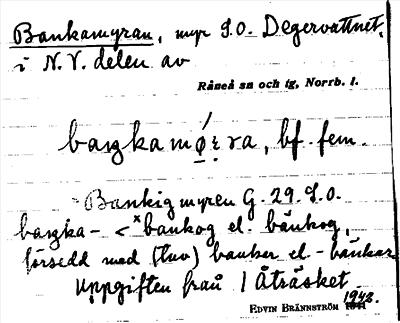 Bankamyran, myr S.O. Degervattnet,
i N.V. delen av
Råneå sn och tg, Norrb. l.
baŋkamǿ̱ra, bf. fem.
Bankig myren G. 29. S.O.
baŋka- < *bankog el. bänkog,
försedd med (tuv) banker el. - bänkar
Uppgiften från 1 Åträsket
EDVIN BRÄNNSTRÖM 1942.